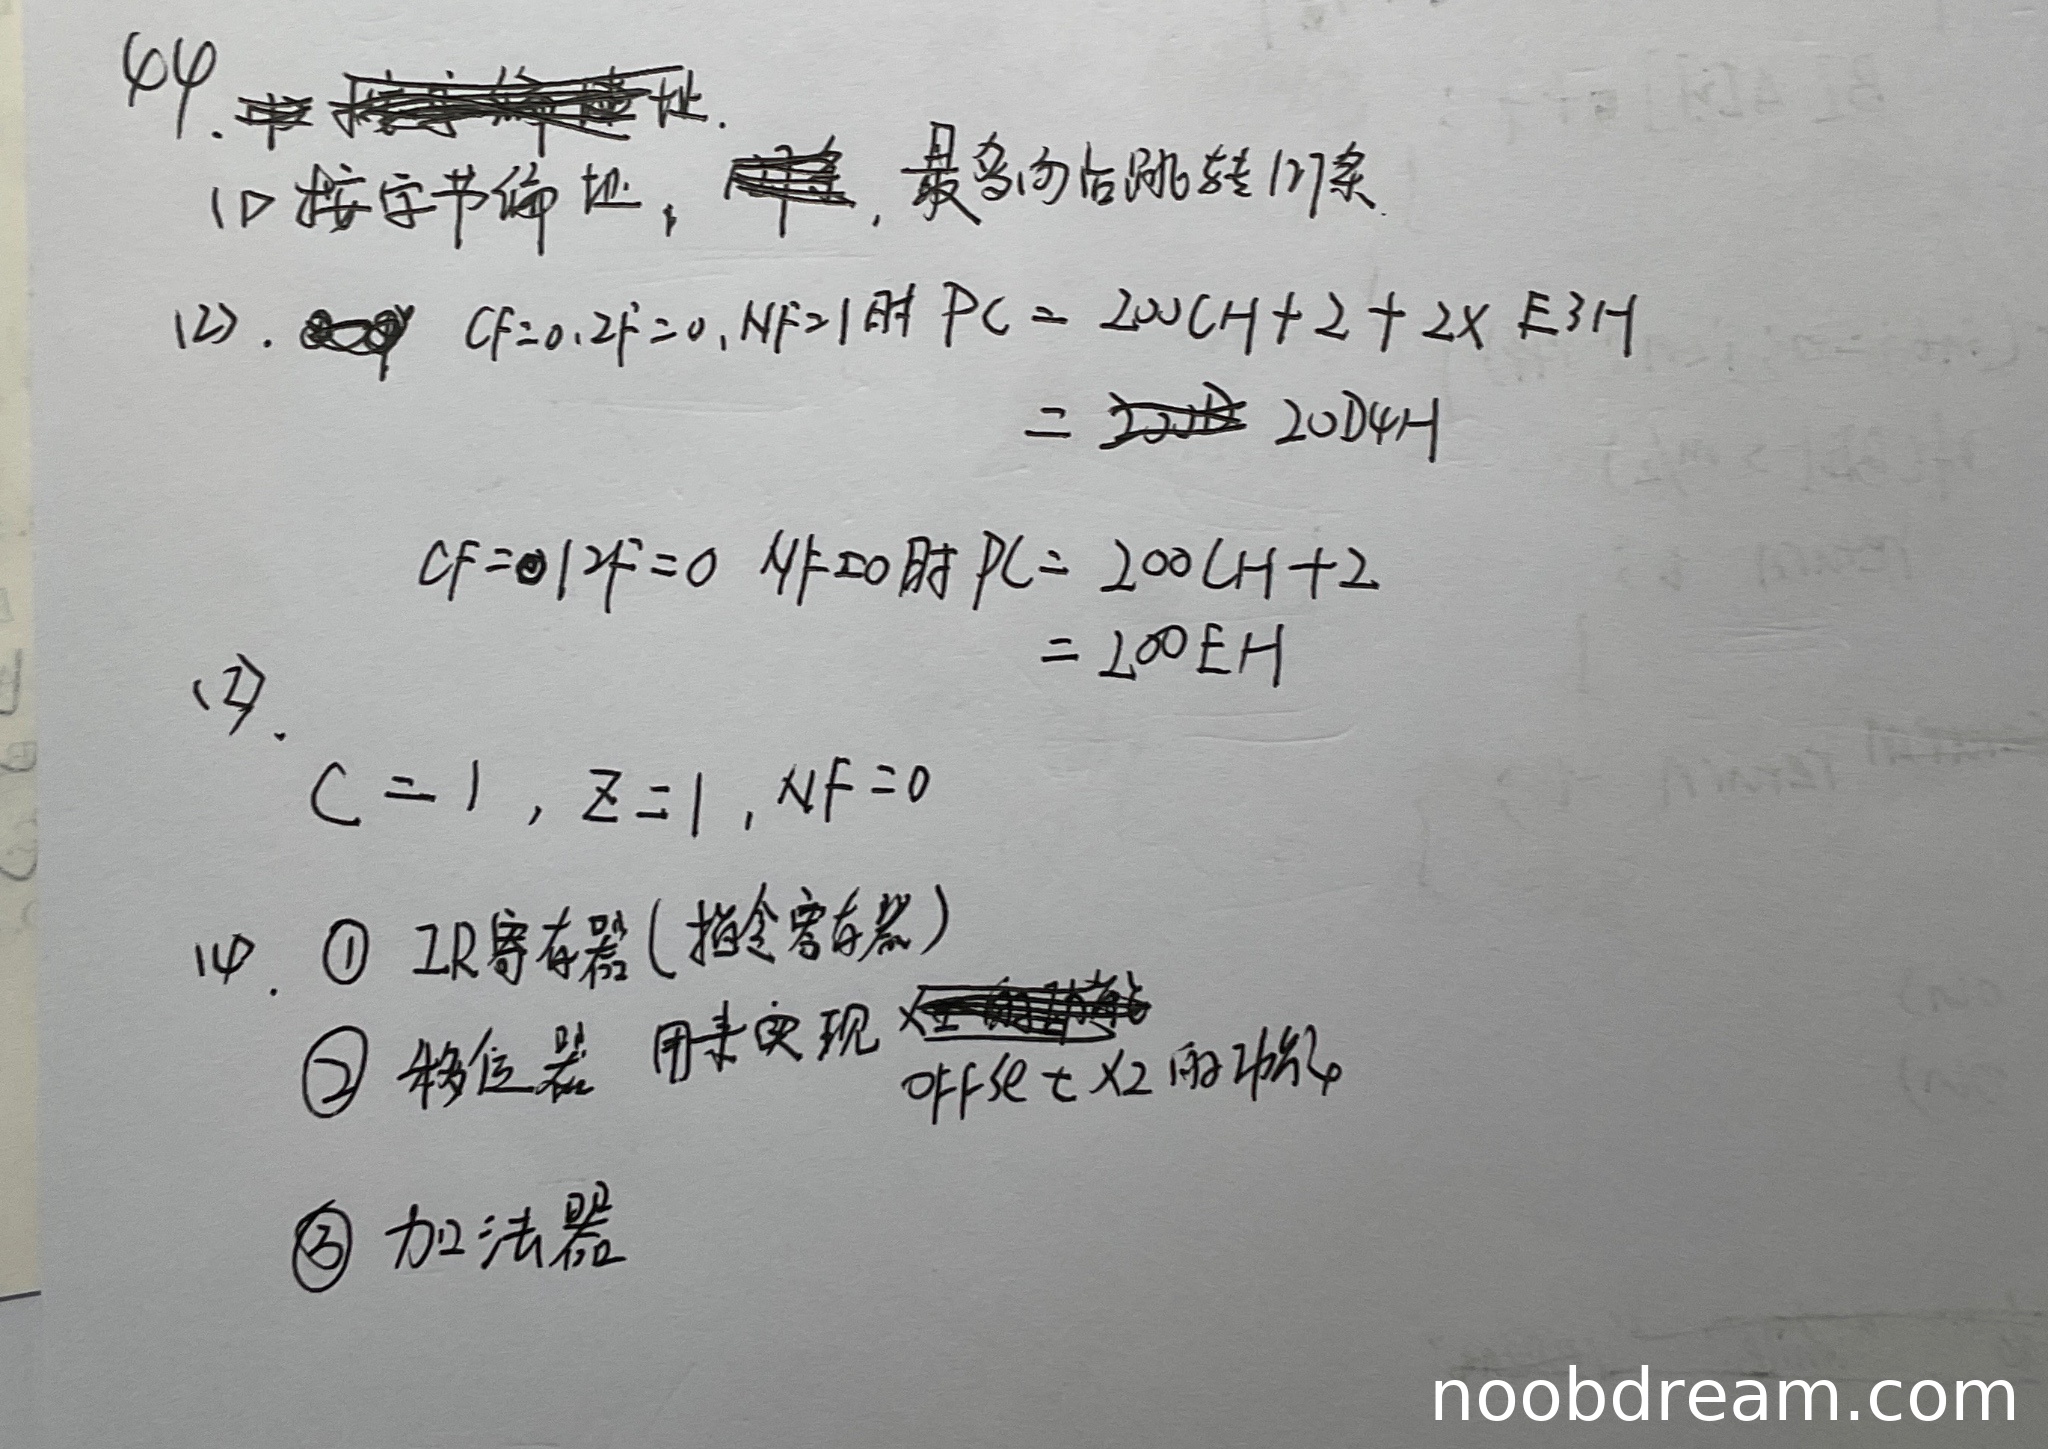 44.
址.
(1) 按字节编址, , 最多向后跳转127条.
(2). CF=0.ZF=0,NF=1时 PC = 200CH+2+2× E3H
= 20D4H
CF=1 ZF=0 NF=0时 PC= 200CH+2
= 200EH
(3).
C=1, Z=1, NF=0
(4). ① IR寄存器(指令寄存器)
② 移位器 用来实现
offset ×2 的功能
③ 加法器
noobdream.com